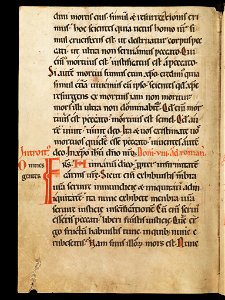 dini mortis eius simul & resurrectionis eri
mus hoc scientes quia vetus homo nr simul
crucifixus est ut destruatur corpus pec
cati ut ultra non serviamus peccato Qui
eni mortuus est iustificatus est a peccato
Si aute mortui sumus cum xpo credim quia
simul etia vivemus
resurgens ex mortuis iam non moritur
mors illi ultra non dominabit Qd eni mor
tuus est peccato mortuus est semel Qd aut
vivit vivit deo Ita & vos existimate vos
mortuos quidē esse peccato viventes aute
Introit
deo in xpo ihu dno nro Dom VII ad roman
Omnes
gentes
Fratres Humanū dico ppter infirmitatē
carnis vre Sicut eni exhibuistis mbra
vra servire inmundicie & iniquitati ad in
iquitatē ita nunc exhibete membra vra
servire iusticie in sanctificatione Cu eni servi
essetis peccati liberi fuistis iusticie Que er
go fructu habuistis tunc in quib nunc e
rubescitis Nam finis illoy mors est Nunc